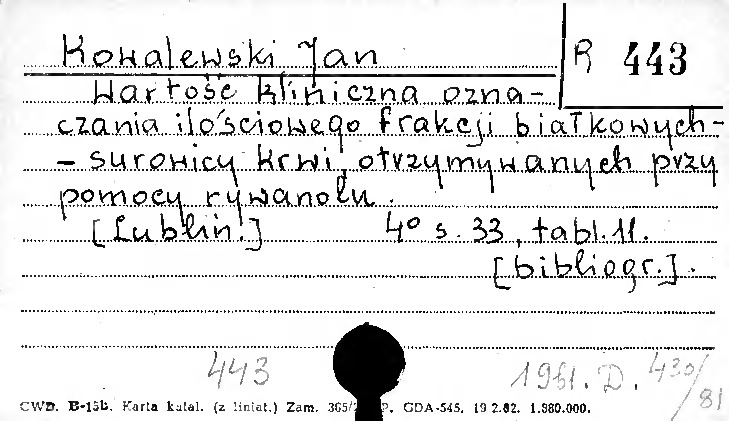 Kowalewski Jan
R 443
Wartość kliniczna ozna-
czania ilościowego frakcji białkowych-
- surowicy krwi, otrzymywanych przy
pomocy rywanolu.
[Lublin.] 4° s. 33, tabl. 11.
[bibliogr.].
443 1961. D. 430/81
CWD. B-15b. Karta katal. (z liniat.) Zam. GDA-545. 19 2.82. 1.980.000.